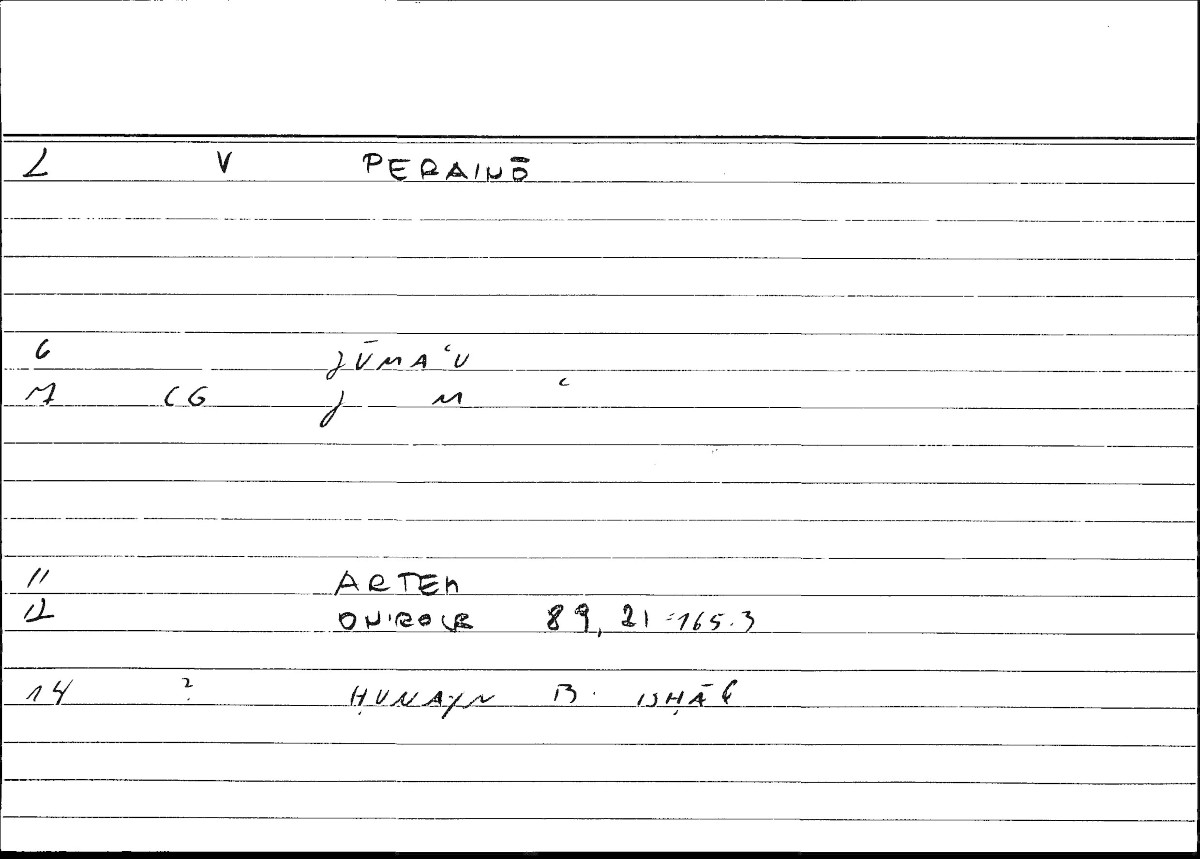 2 V PERAINŌ
6 JŪMAʿU
7 CG J M ʿ
11 ARTEM
12 ONIROCR 89, 21 = 165.3
14 ? ḤUNAYN B. ISḤĀQ